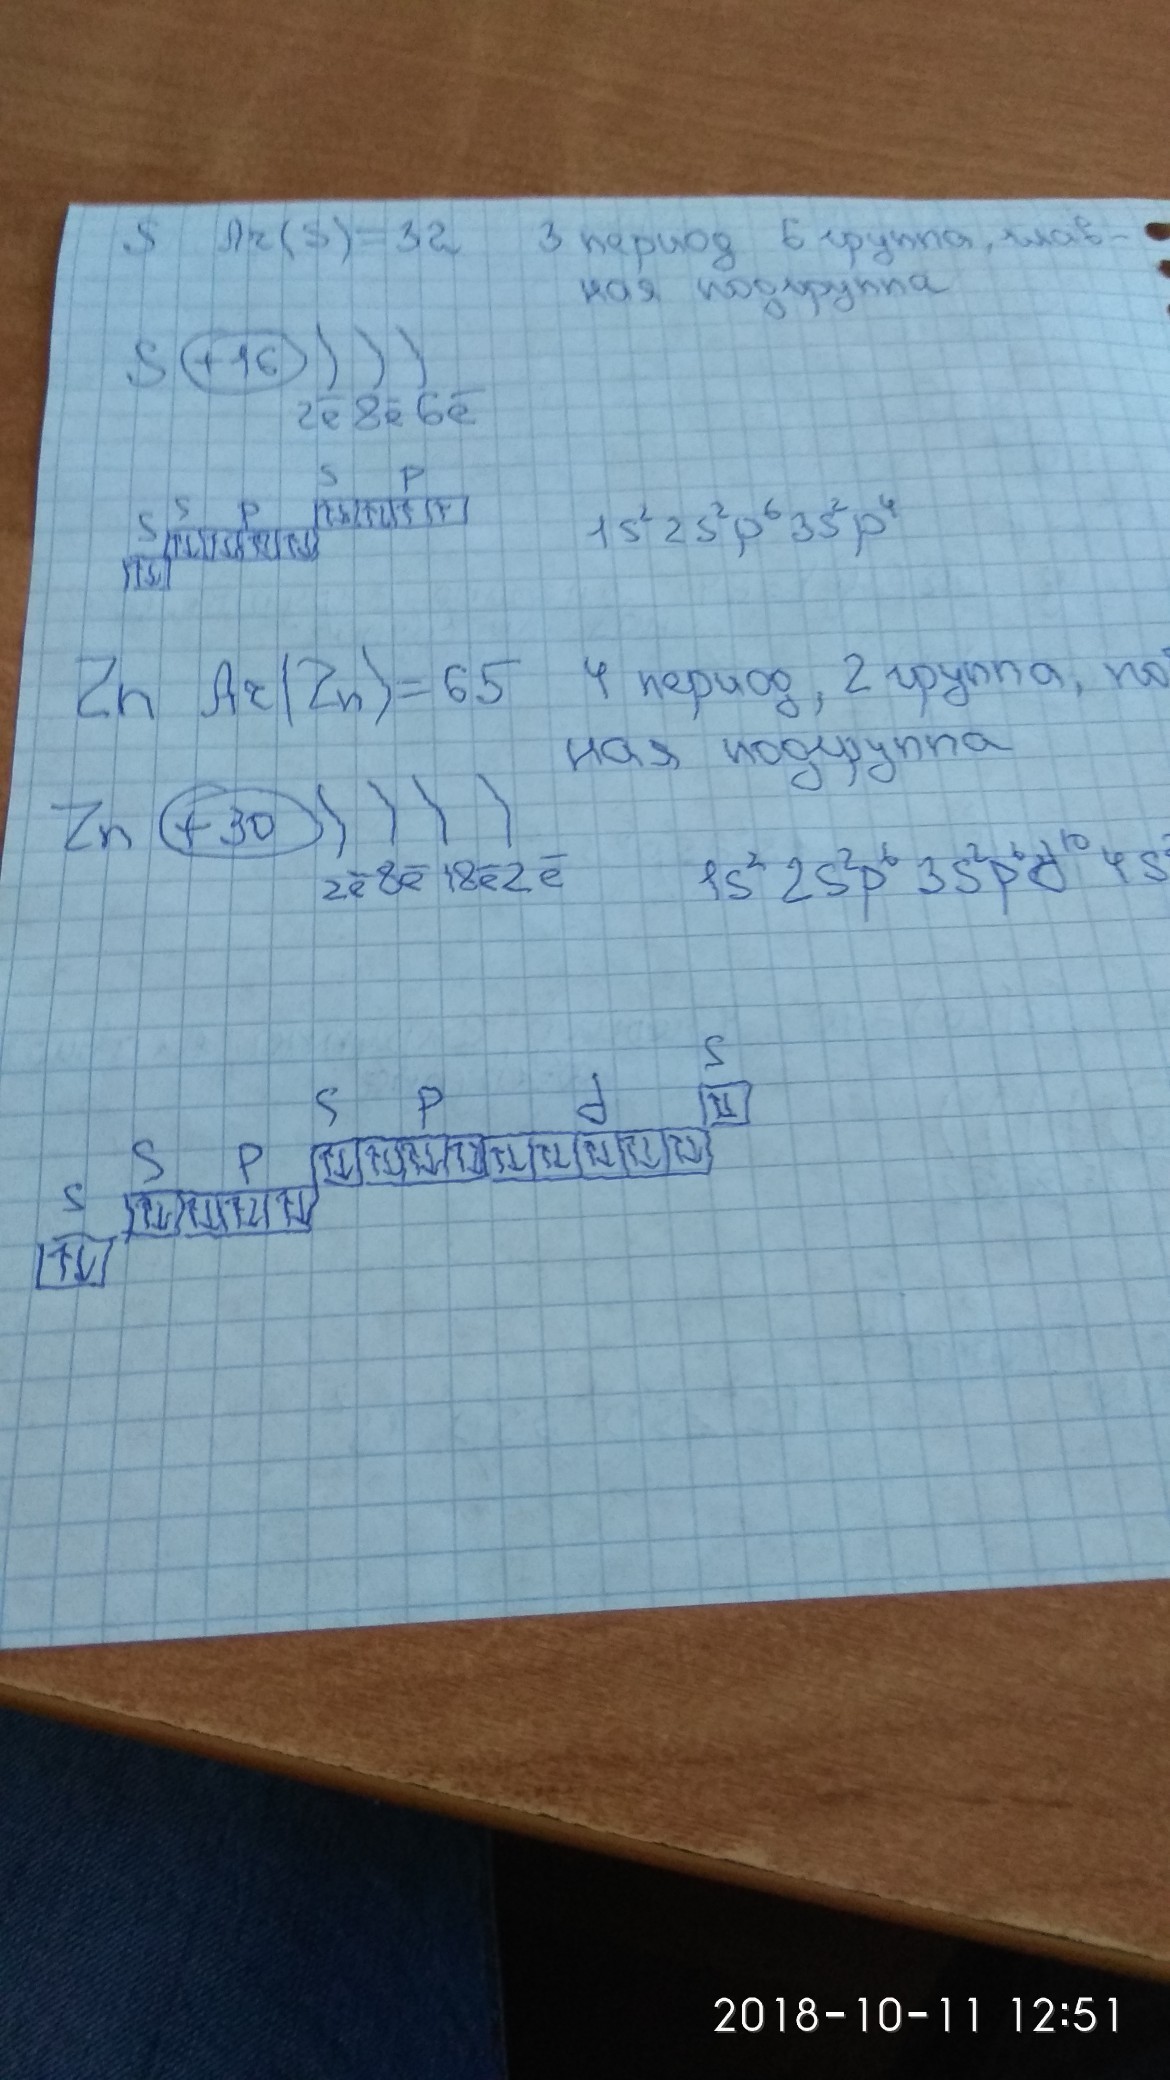 S Ar(S)=32 3 период 6 группа, глав-
ная подгруппа
S +16 ) ) )
2ē 8ē 6ē
S P
S S P
1s² 2s²p⁶ 3s²p⁴
Zn Ar(Zn)=65 4 период, 2 группа, поб
ная подгруппа
Zn +30 ) ) ) )
2ē 8ē 18ē 2ē 1s² 2s²p⁶ 3s²p⁶d¹⁰ 4s²
S
S P d
S P
S
2018-10-11 12:51